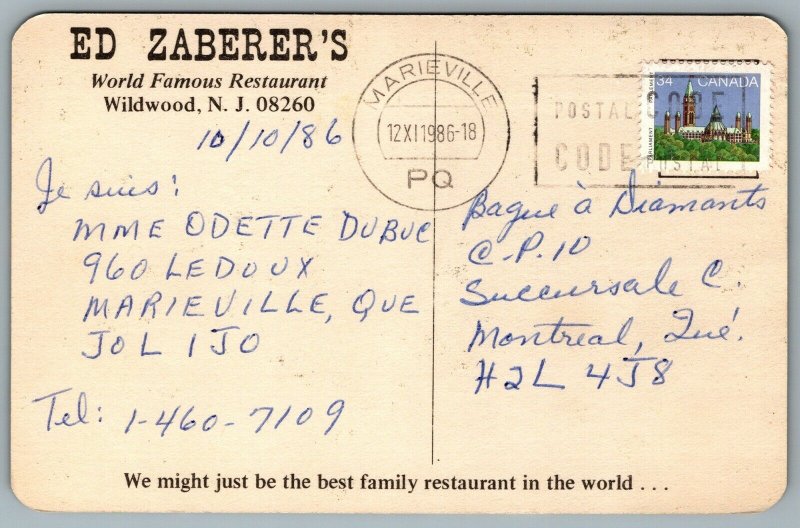 ED ZABERER'S
World Famous Restaurant
Wildwood, N. J. 08260
10/10/86
Je suis:
MME ODETTE DUBUC
960 LEDOUX
MARIEVILLE, QUE
J0L 1J0
Tel: 1-460-7109
MARIEVILLE
12XI1986-18
PQ
POSTAL CODE
CODE POSTAL
34 CANADA
PARLIAMENT
Bague à Diamants
C.P. 10
Succursale C.
Montreal, Qué.
H2L 4J8
We might just be the best family restaurant in the world . . .